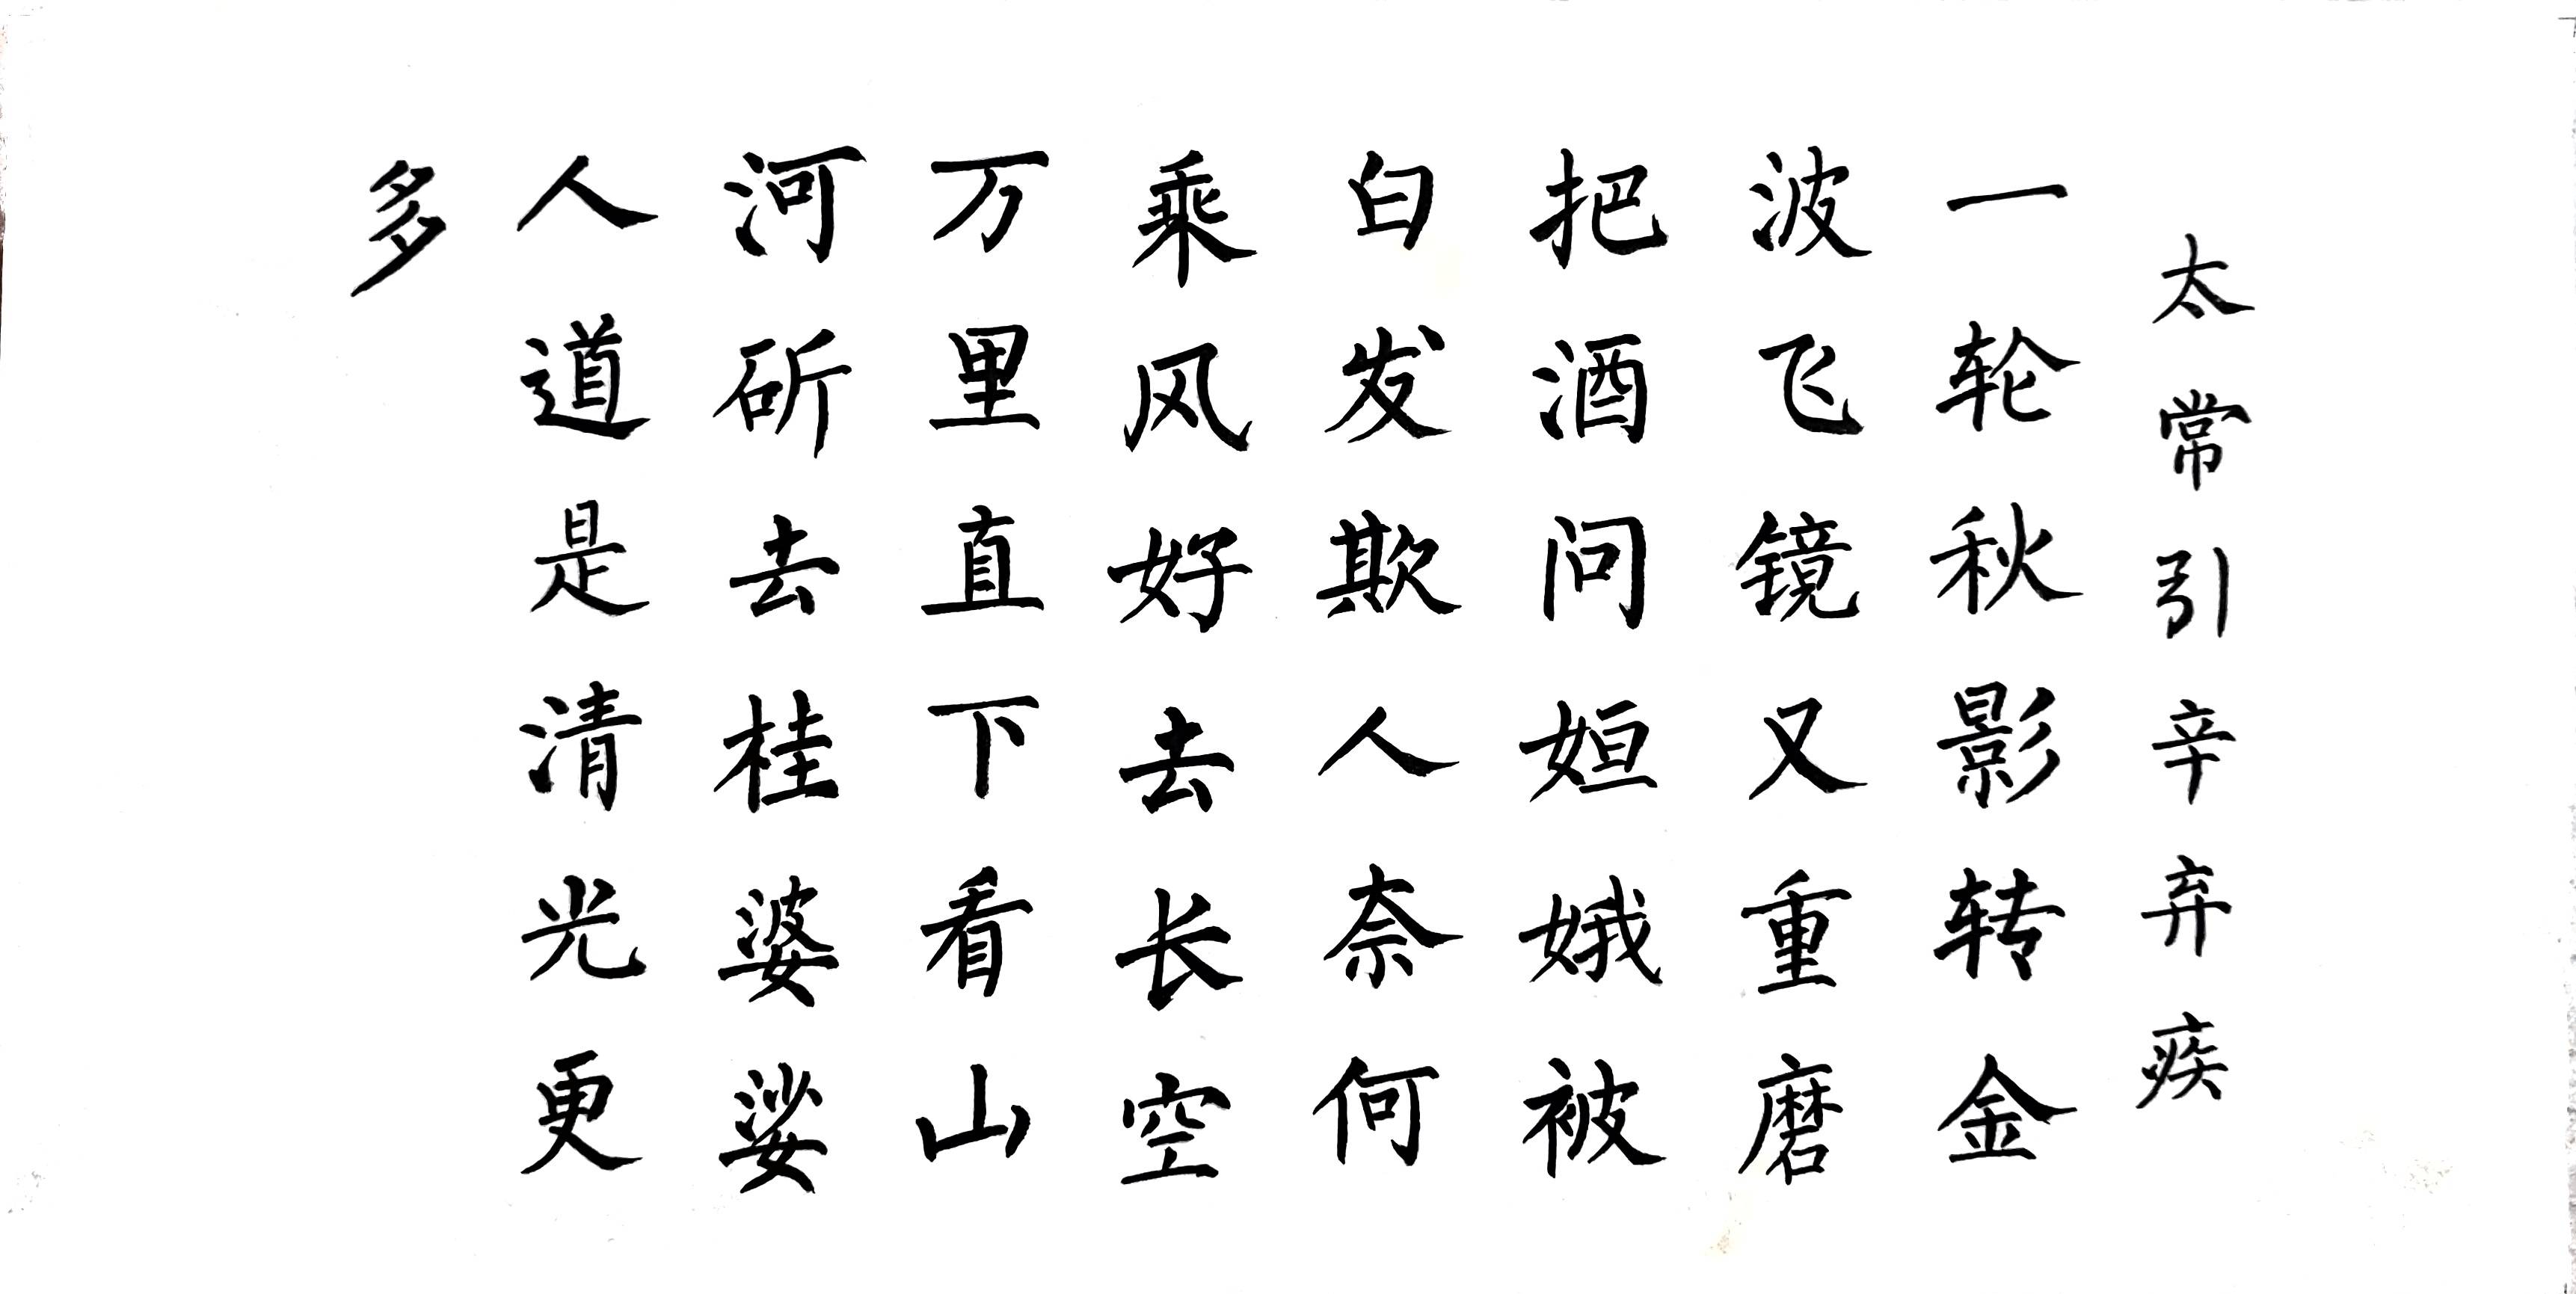 太常引辛弃疾
一轮秋影转金
波飞镜又重磨
把酒问姮娥被
白发欺人奈何
乘风好去长空
万里直下看山
河斫去桂婆娑
人道是清光更
多